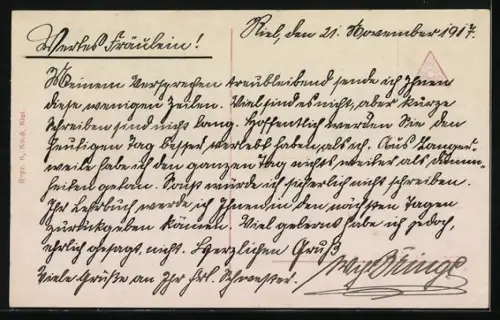 Kiel, den 21. November 1917.
Wertes Fräulein!
Meinem Versprechen treubleibend sende ich Ihnen
diese wenigen Zeilen. Viel sind es nicht, aber kurze
Schreiben sind nicht lang. Hoffentlich werden Sie den
heutigen Tag besser verlebt haben, als ich. Aus Langer-
weile habe ich den ganzen Tag nichts weiter als Dumm-
heiten getan. Sonst würde ich sicherlich nicht schreiben.
Ihr Lehrbuch werde ich Ihnen in den nächsten Tagen
zurückgeben können. Viel gelernt habe ich jedoch,
ehrlich gesagt, nicht. Herzlichen Gruß
Viele Grüße an Ihr Frl. Schwester.